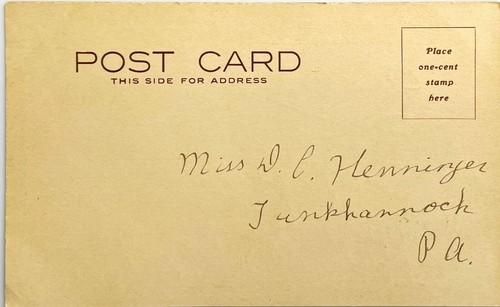 POST CARD
THIS SIDE FOR ADDRESS
Place
one-cent
stamp
here
Miss D. C. Henninger
Tunkhannock
PA.